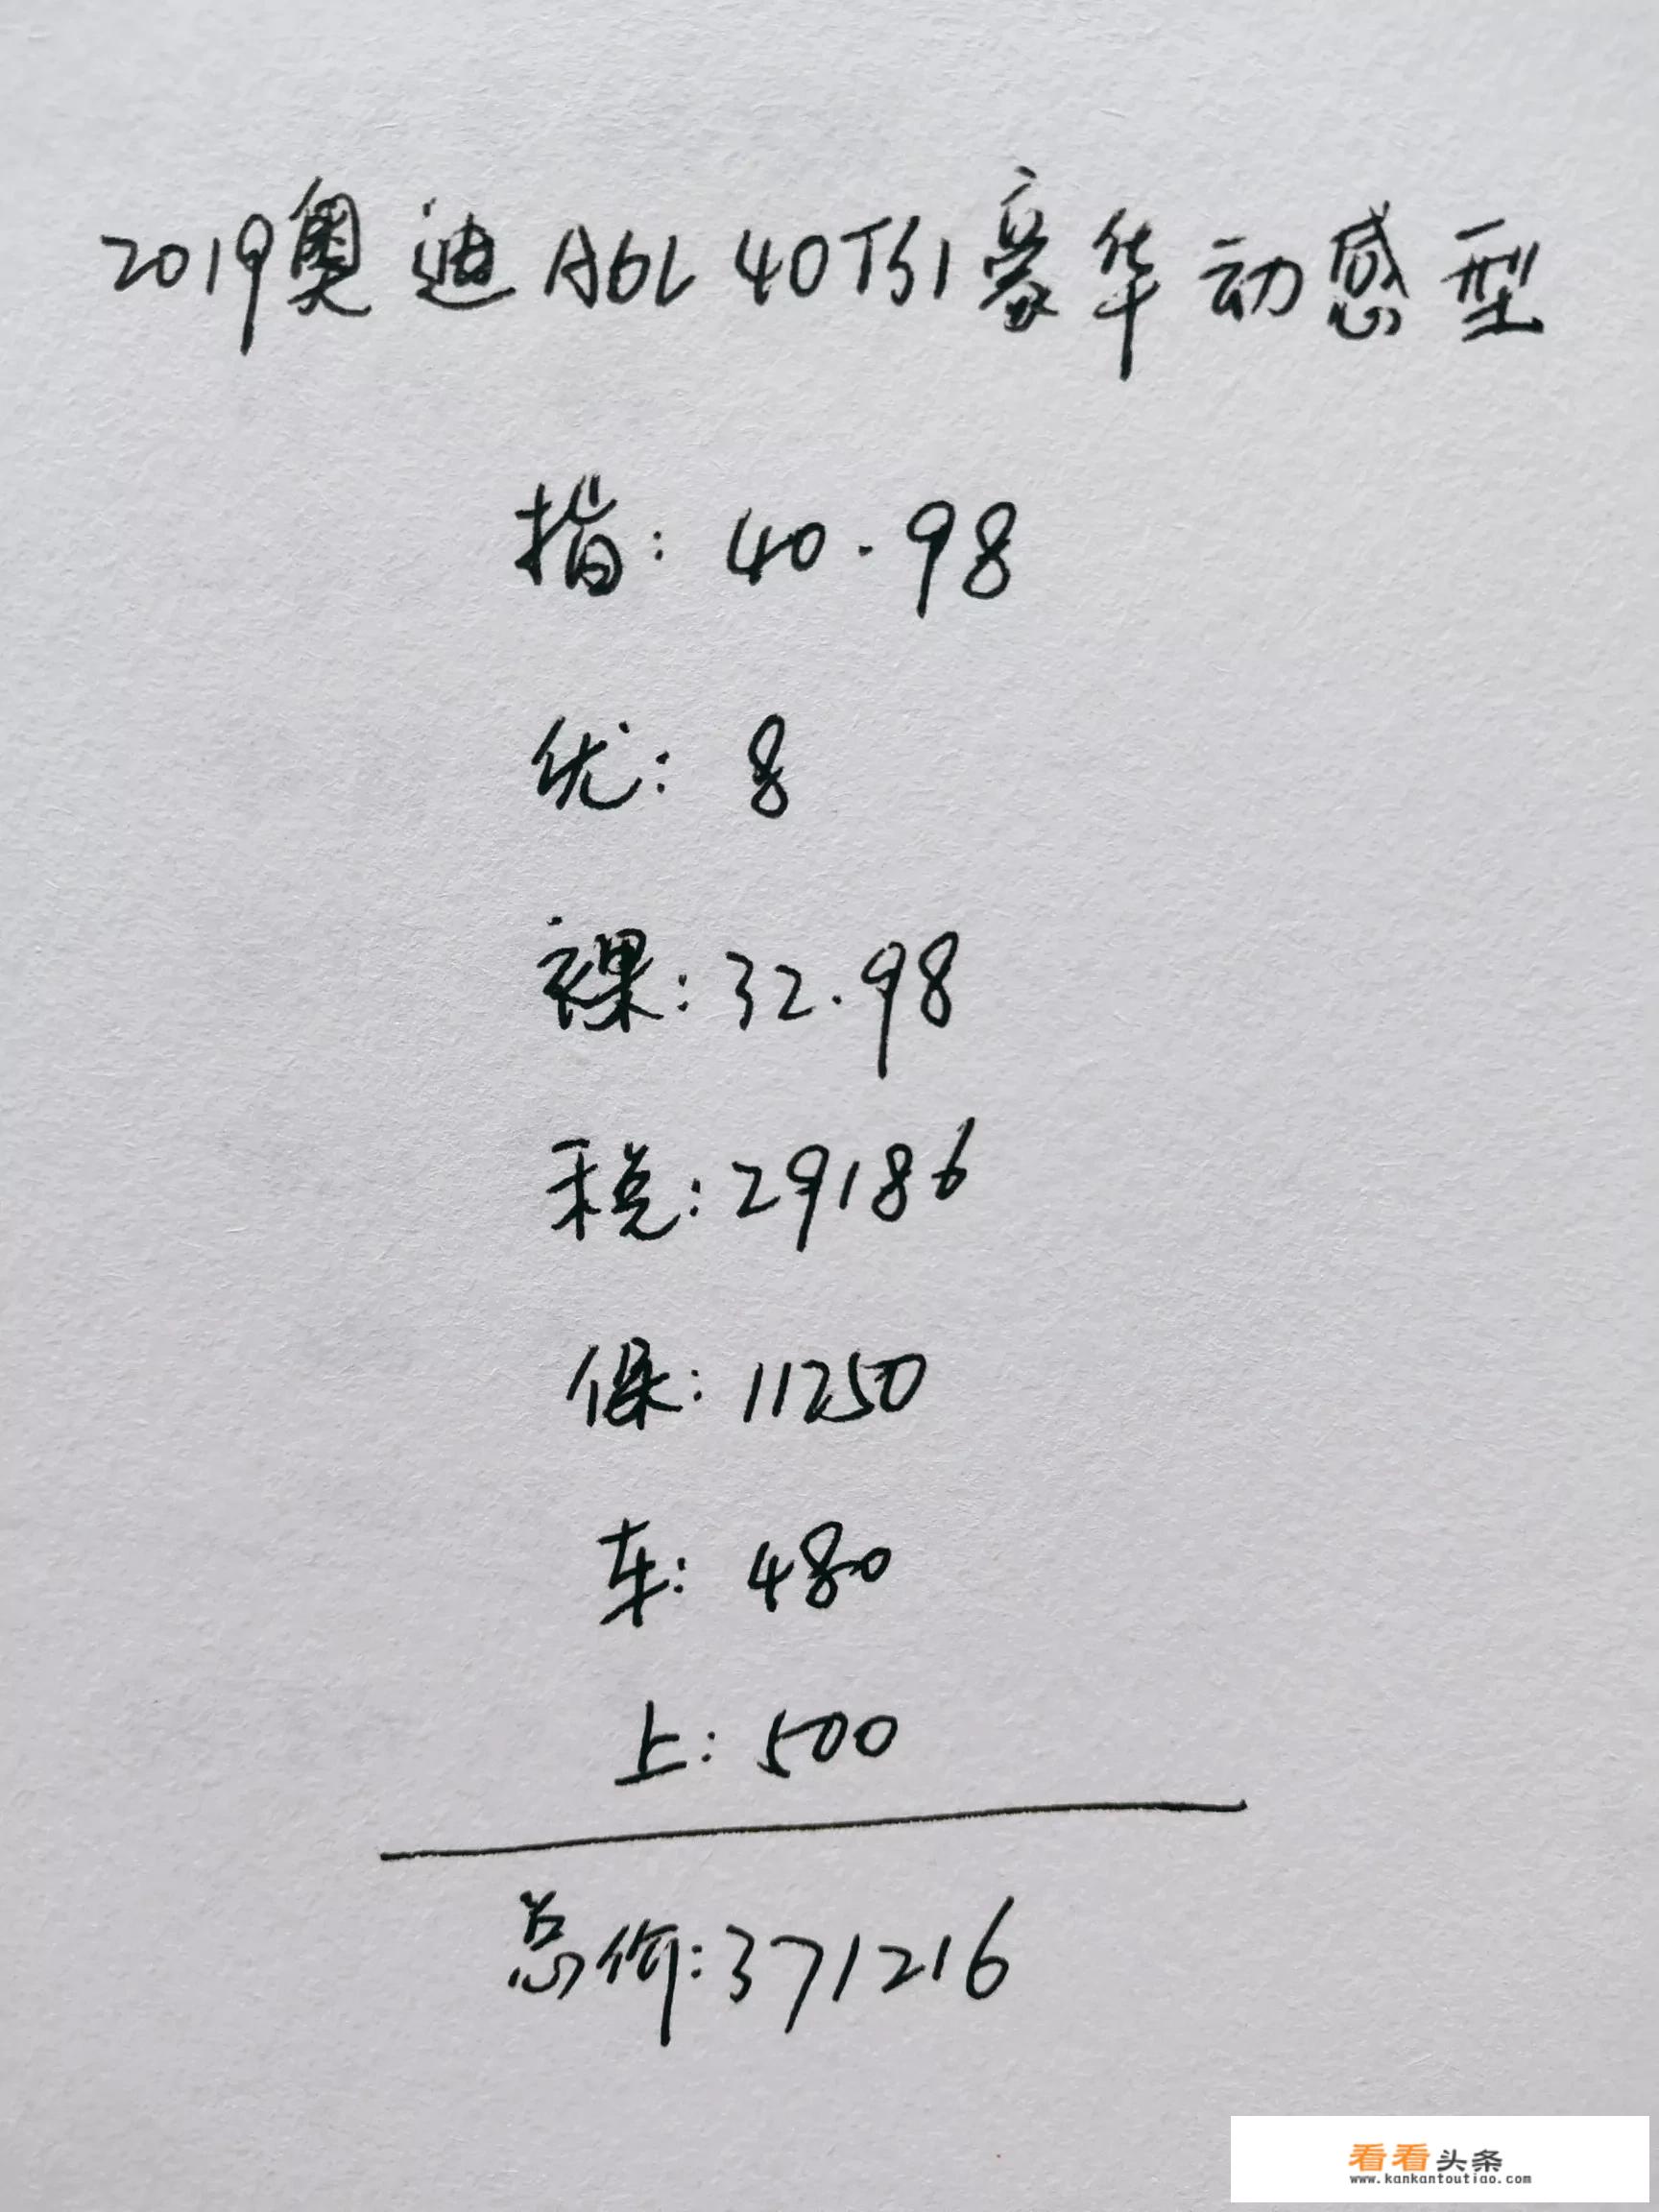 2019奥迪A6L 40TSI豪华动感型
指: 40.98
优: 8
裸: 32.98
税: 29186
保: 11250
车: 480
上: 500
总价: 371216
看看头条
www.kankantoutiao.com